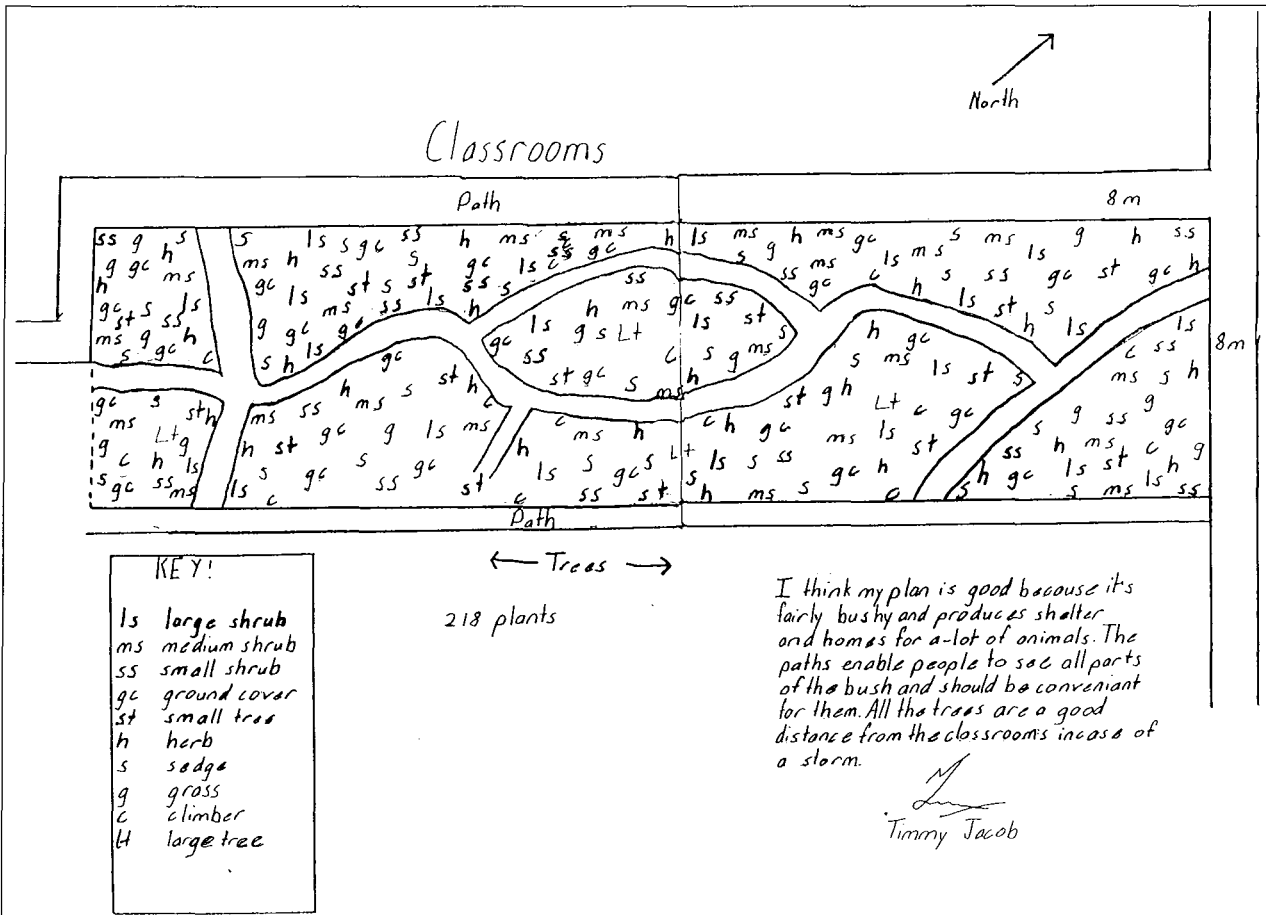 North
Classrooms
Path
8m
ss g h s
g gc h ms
h
gc s ls
st ss
ms g gc h
s c
s ls s gc ss h ms s h
ms h s gc ms gc
gc ss st s st ss ls c
ls ms ss ls h
g gc ls gc
s h
ls ms h ms s ms g h ss
s g gc c ms
ss ms c h s ss gc st gc h
gc s st ls
h
ss
h ms gc ss
ls g s Lt ls st
gc s
ss c s g ms
st gc s h
ms
gc s
ms st h
Lt g
g
c h ls
s gc ss ms
gc
h st h
ms ss ms s c
h st gc g ls ms
s gc s gc
ls c ss st
c ms h
ls s gc s Lt
c ss st
h gc
s ms ls st s
st g h Lt c gc
c h gc ms ls
ls s ss st
s h ms s gc h c
ls
c ss
ms s h
g ss g
s gc
ss h ms c h g
s h gc ls st
s ms ls ss
8m
Path
← Trees →
218 plants
KEY!
ls large shrub
ms medium shrub
ss small shrub
gc ground cover
st small tree
h herb
s sedge
g grass
c climber
Lt large tree
I think my plan is good because it's
fairly bushy and produces shelter
and homes for a-lot of animals. The
paths enable people to see all parts
of the bush and should be conveniant
for them. All the trees are a good
distance from the classrooms incase of
a storm.
Timmy Jacob